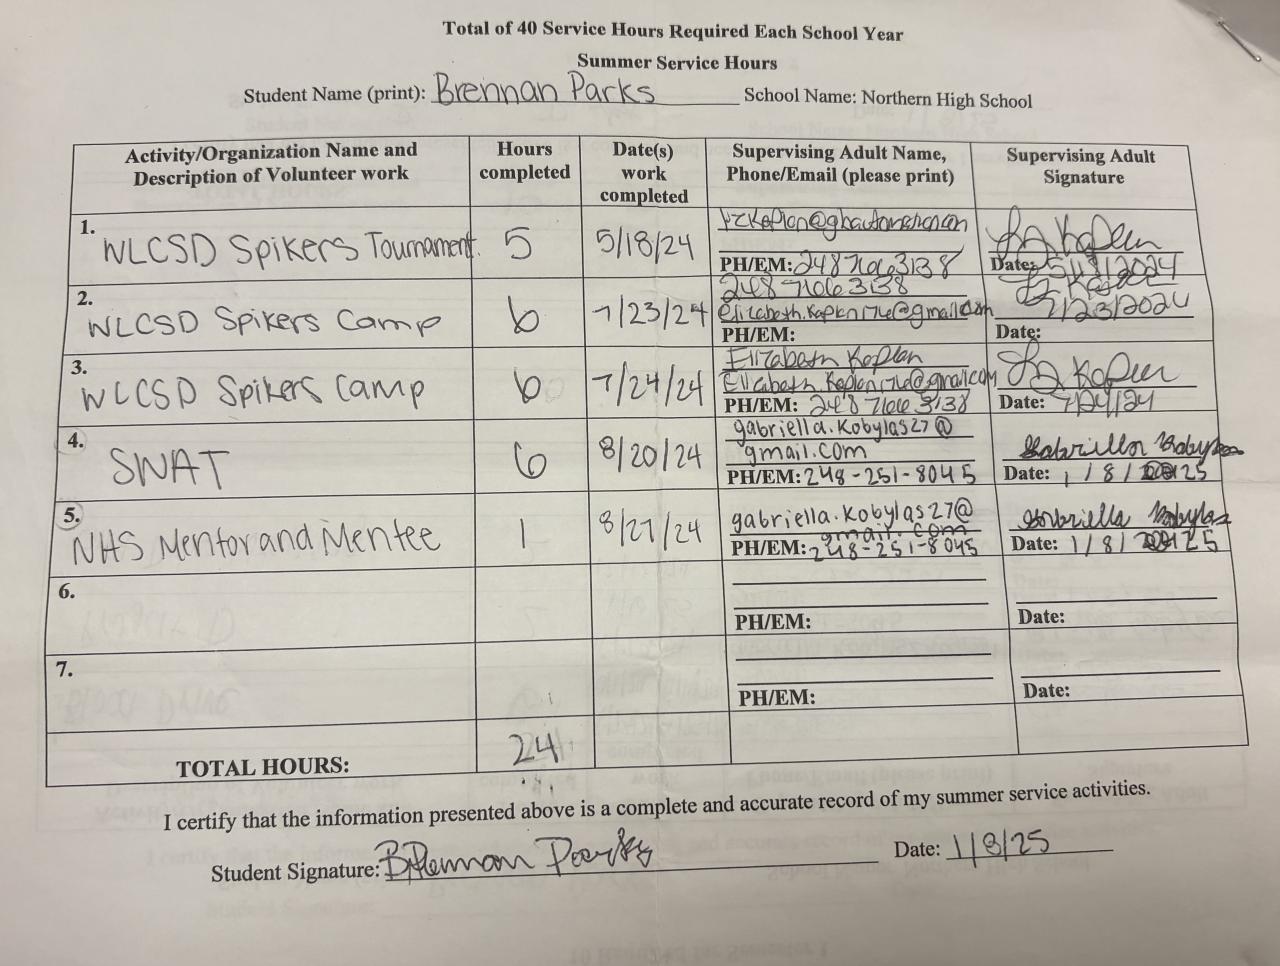 Total of 40 Service Hours Required Each School Year
Summer Service Hours
Student Name (print): Brennan Parks School Name: Northern High School
Activity/Organization Name and Description of Volunteer work
Hours completed
Date(s) work completed
Supervising Adult Name, Phone/Email (please print)
Supervising Adult Signature
1. WLCSD Spikers Tournament. 5 5/18/24
PH/EM: 248 766 3138
Date: 5/18/2024
2. WLCSD Spikers Camp 6 7/23/24
248 766 3138
elizabeth.kaplan176@gmail.com
PH/EM:
7/23/2024
Date:
3. WLCSD Spikers Camp 6 7/24/24
Elizabeth Kaplan
Elizabeth.Kaplan176@gmail.com
PH/EM: 248 766 3138
Lz Kaplan
Date: 7/24/24
4. SWAT 6 8/20/24
gabriella.kobylas27@
gmail.com
PH/EM: 248-251-8045
Gabriella Kobylas
Date: 1/8/2025
5. NHS Mentor and Mentee 1 8/27/24
gabriella.kobylas27@
gmail.com
PH/EM: 248-251-8045
Gabriella Kobylas
Date: 1/8/2025
6.
PH/EM:
Date:
7.
PH/EM:
Date:
TOTAL HOURS: 24
I certify that the information presented above is a complete and accurate record of my summer service activities.
Student Signature: Brennan Parks Date: 1/8/25